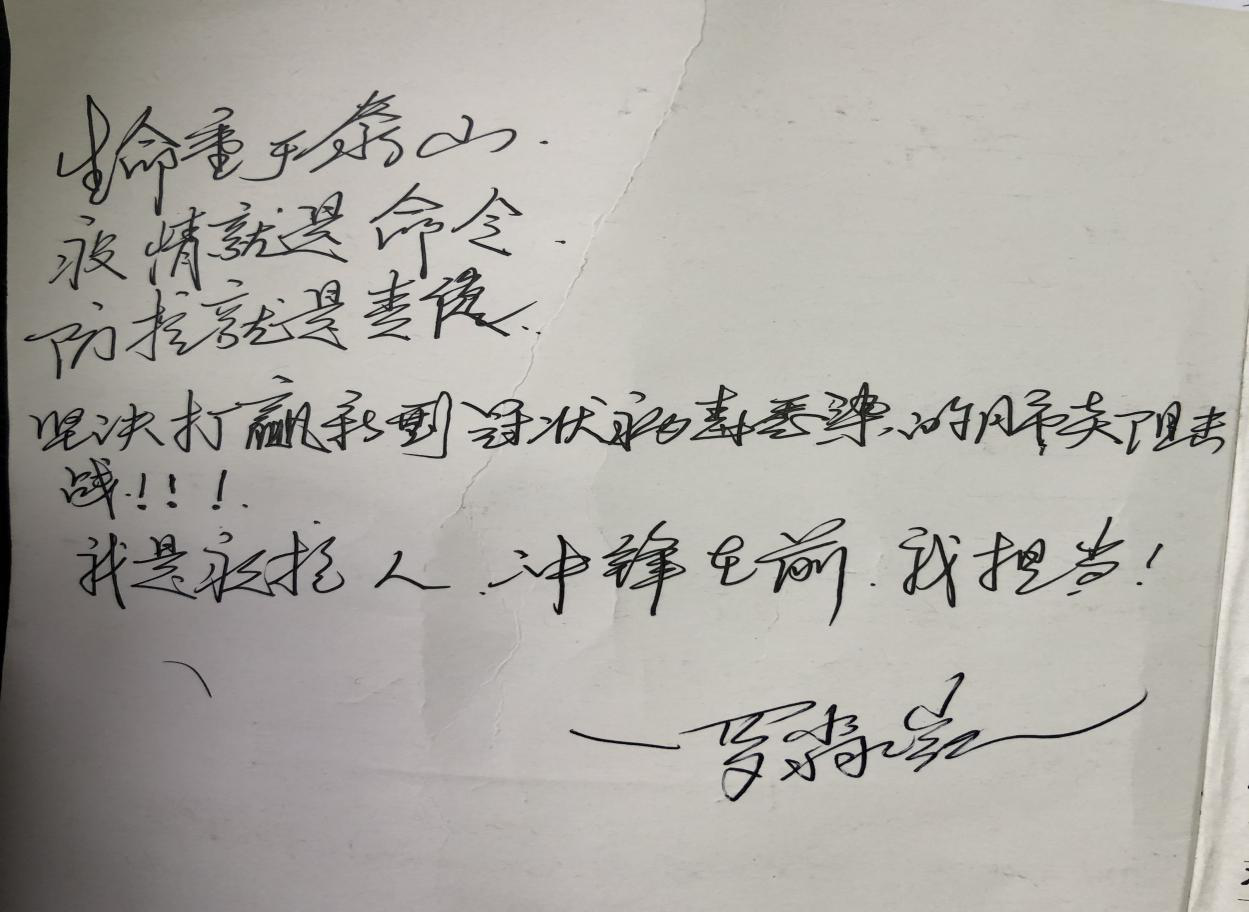 生命重于泰山.
疫情就是命令.
防控就是责任.
坚决打赢新型冠状病毒感染的肺炎阻击
战!!!
我是疾控人.冲锋在前.我担当!
罗